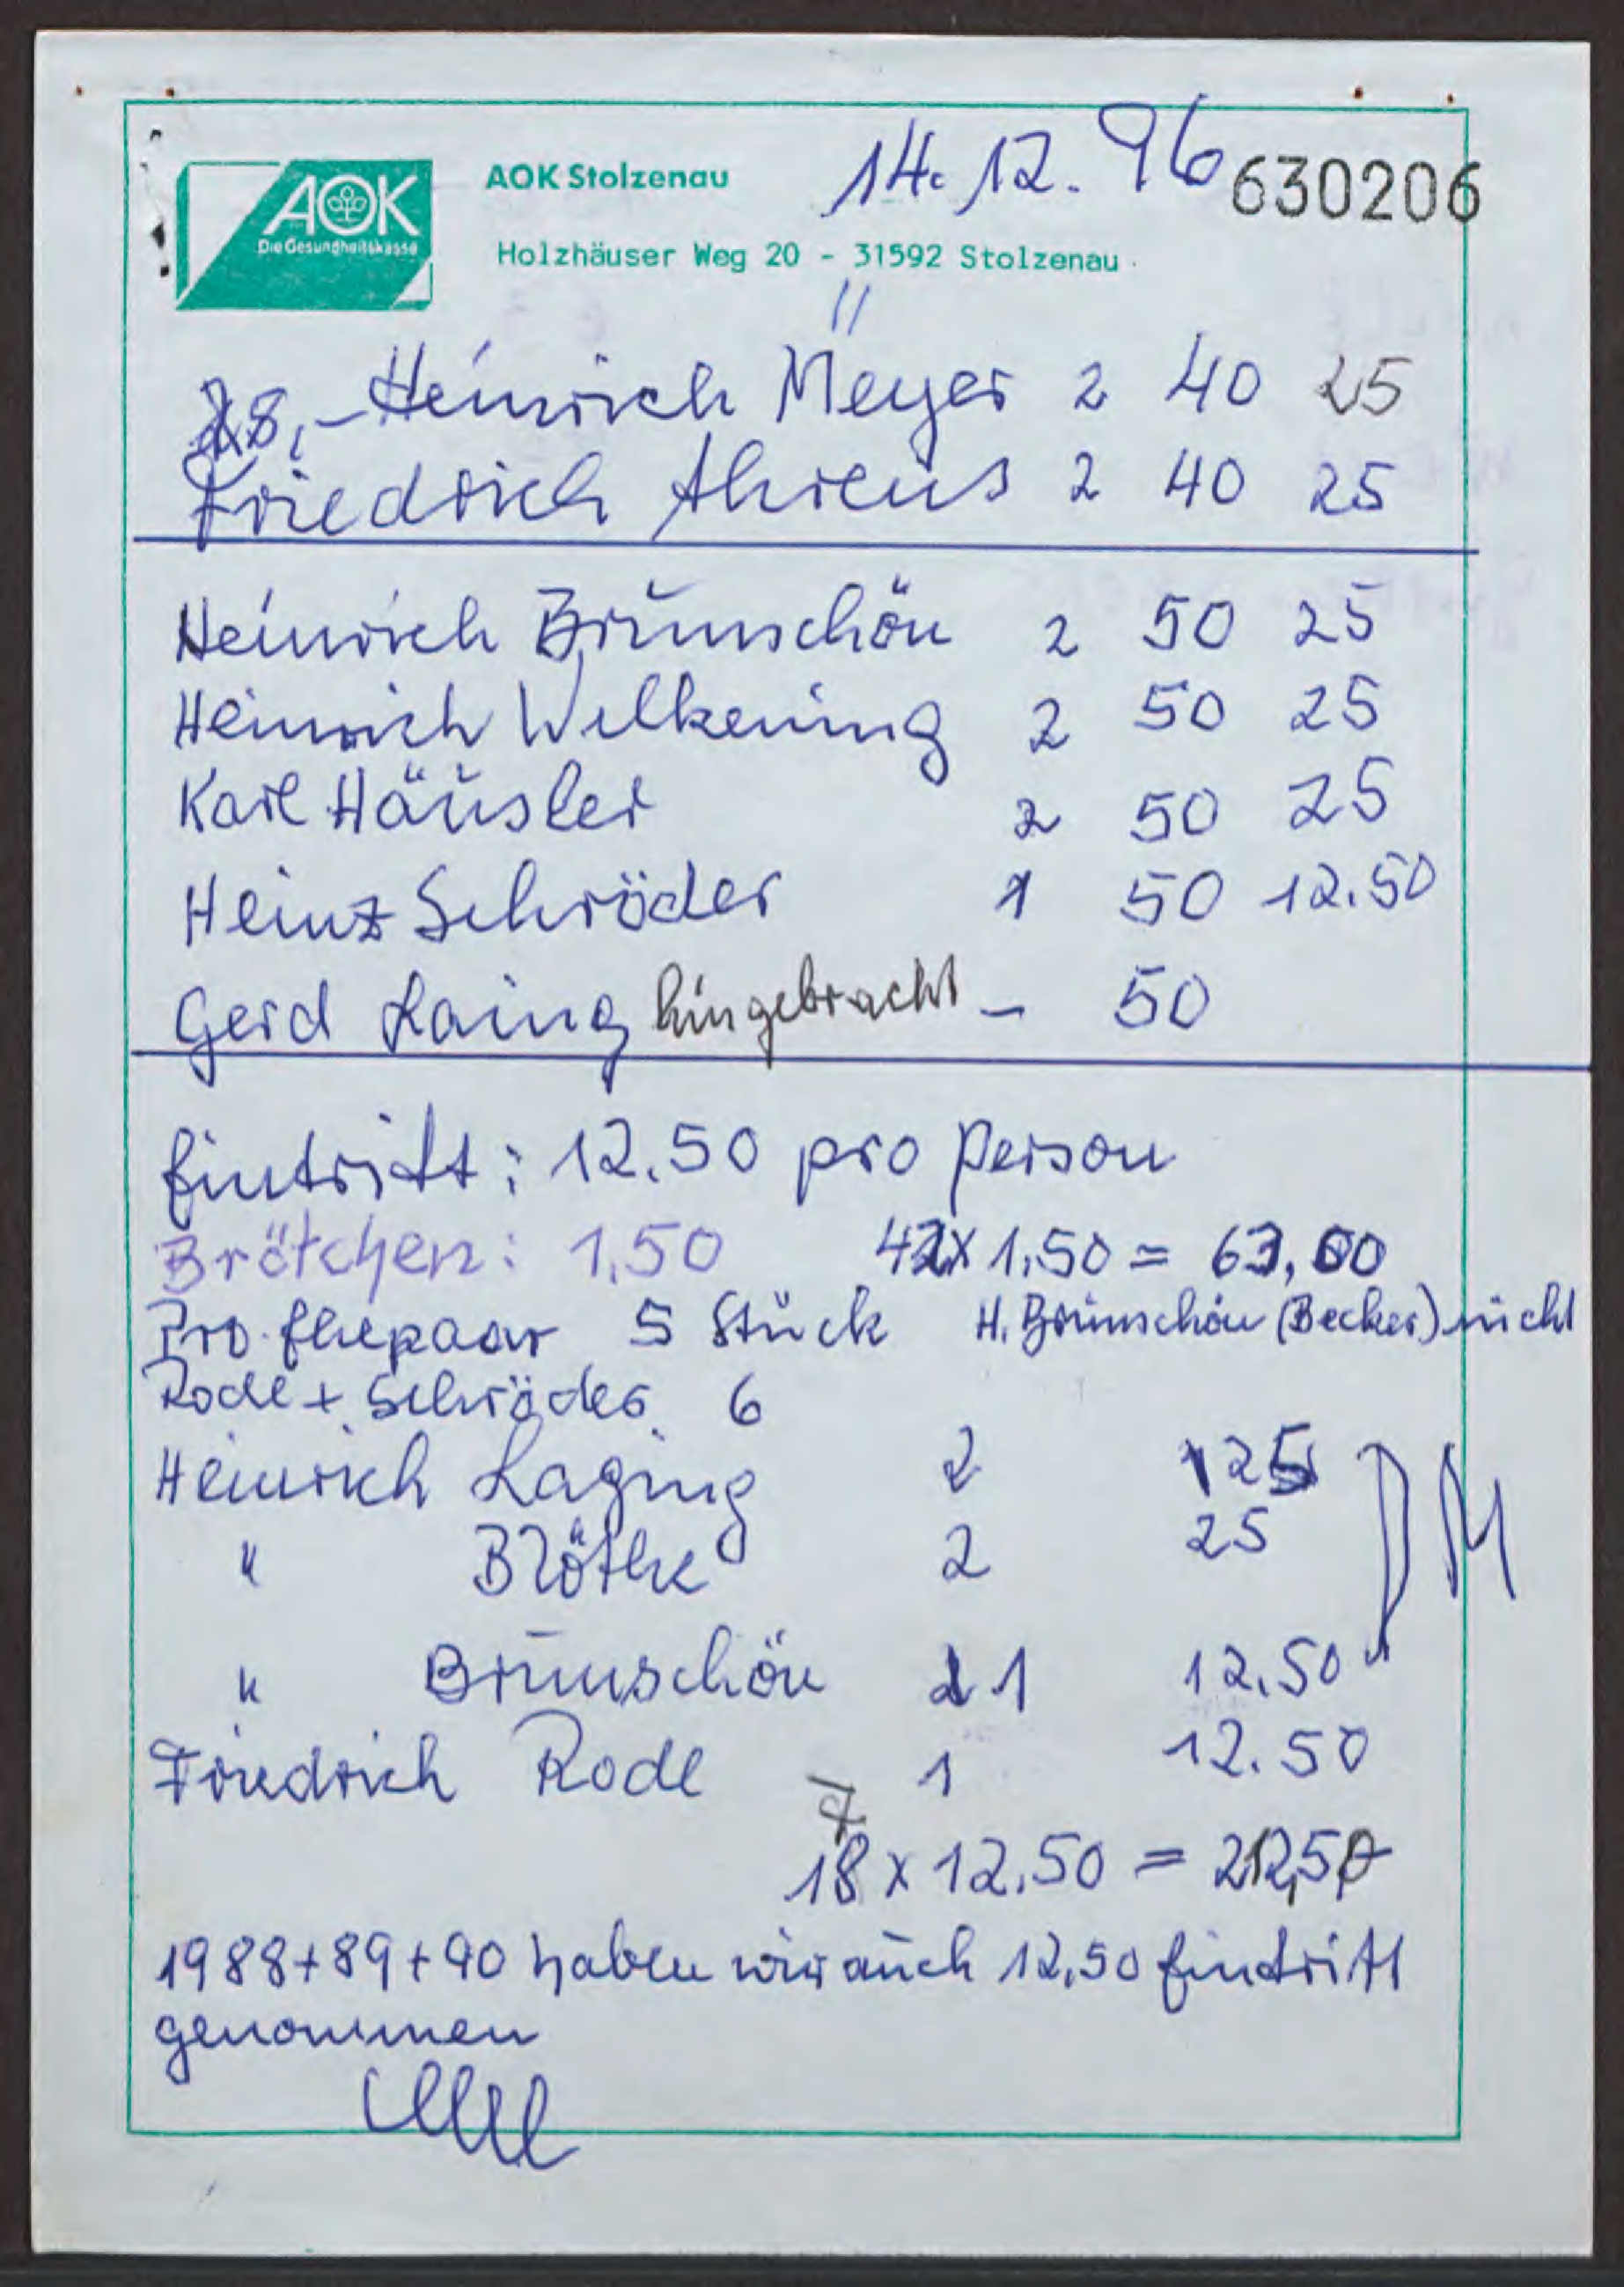 AOK
Die Gesundheitskasse
AOK Stolzenau 14.12.96 630206
Holzhäuser Weg 20 - 31592 Stolzenau
28,- Heinrich Meyer 2 40 25
Friedrich Ahrens 2 40 25
Heinrich Brünschön 2 50 25
Heinrich Wilkening 2 50 25
Karl Häusler 2 50 25
Heinz Schröder 1 50 12.50
Gerd Laing hingebracht - 50
Eintritt: 12.50 pro Person
Brötchen: 1,50 42 x 1.50 = 63,00
Pro Ehepaar 5 Stück H. Brünschön (Becker) nicht
Rode + Schröder 6
Heinrich Laging 2 25
" Bröthe 2 25
" Brünschön 1 12.50
Friedrich Rode 1 12.50
7
18 x 12.50 = 212,50
1988+89+90 haben wir auch 12,50 Eintritt
genommen